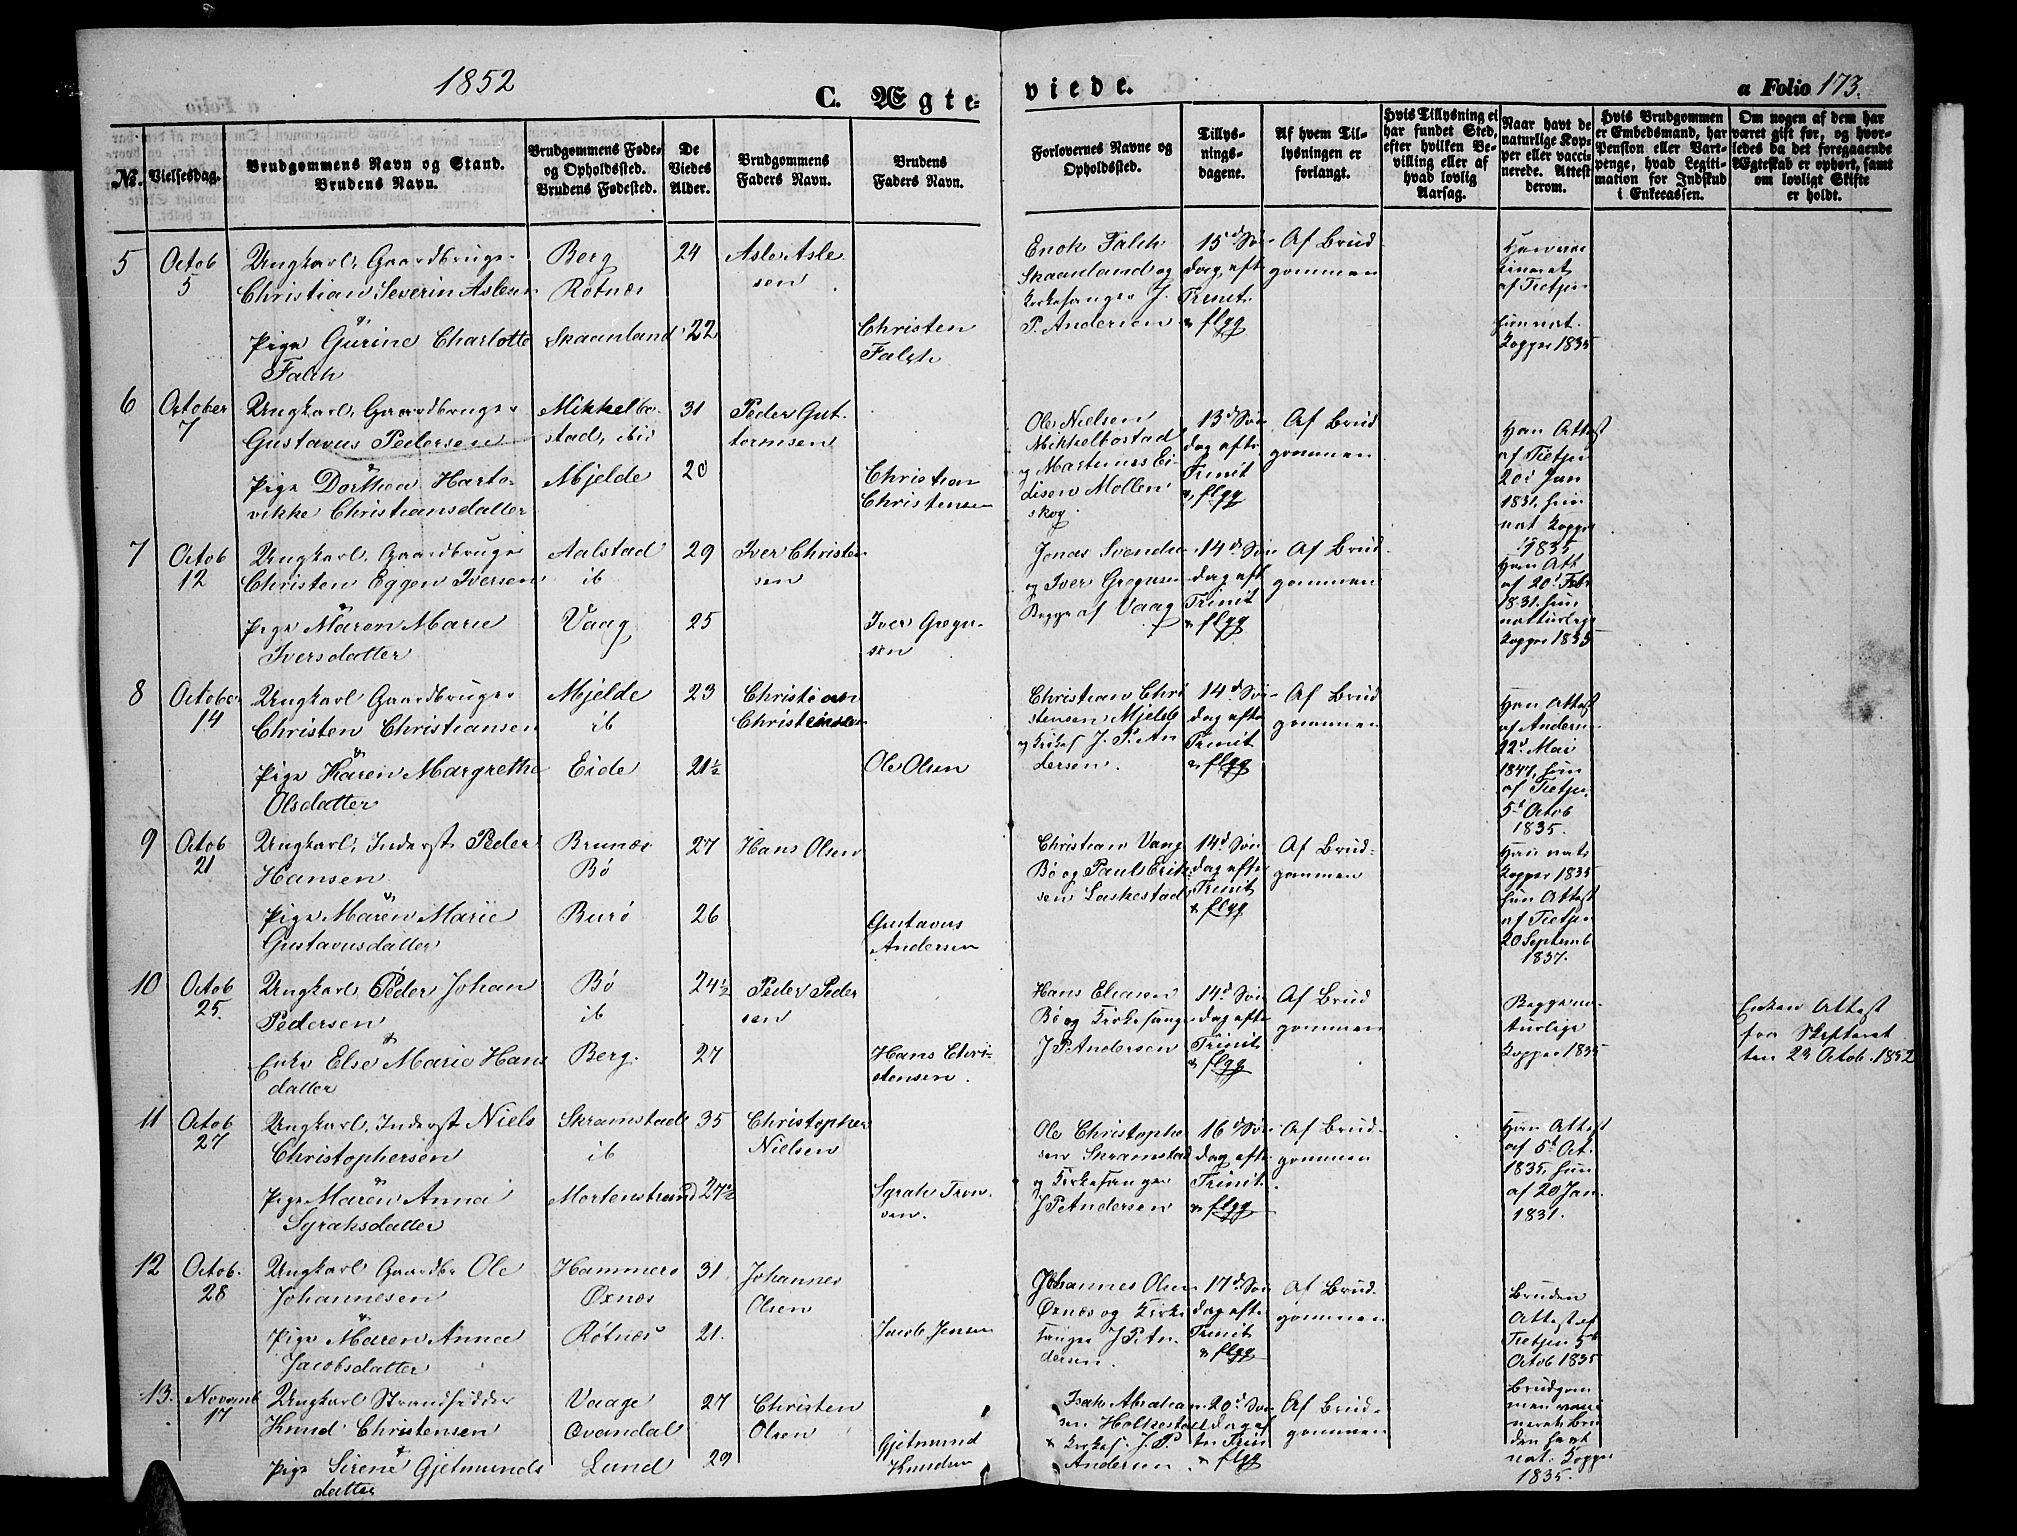 1852
C. Ægte-
viede.
a Folio 173.
No.
Vielsesdag.
Brudgommens Navn og Stand.
Brudens Navn.
Brudgommens Føde-
og Opholdssted.
Brudens Fødested.
De
Viedes
Alder.
Brudgommens
Faders Navn.
Brudens
Faders Navn.
Forlovernes Navne og
Opholdssted.
Tillys-
nings-
dagene.
Af hvem Til-
lysningen er
forlangt.
Hvis Tillysning ei
har fundet Sted,
efter hvilken Be-
villing eller af
hvad lovlig
Aarsag.
Naar havt de
naturlige Kop-
per eller vacci-
nerede. Attest
derom.
Hvis Brudgommen
er Embedsmand, har
Pension eller Vart-
penge, hvad Legiti-
mation for Indskud
i Enkecassen.
Om nogen af dem har
været gift før, og hvor-
ledes da det foregaaende
Ægteskab er ophørt, samt
om lovligt Skifte
er holdt.
5
Octob
5
Ungkarl, Gaardbruger
Christian Severin Aslesen
&
Pige Gurine Charlotte
Falch
Berg
Rötnes
Skaanland
24
22
Asle Asle
sen
Christen
Falch
Enok Falch
Skaanland og
Kirkesanger J.
P. Andersen
15d Søn
dag eft
Trinit
& flgg
Af Brud
gommen
Han vac
cineret
af Tietjen
hun nat.
Kopper 1835
6
October
7
Ungkarl, Gaardbruger
Gustavus Pedersen
&
Pige Dorthea Harto-
vikke Christiansdatter
Mikkelbo-
stad, ibid
Mjelde
31
20
Peder Gut-
tormsen
Christian
Christensen
Ole Nielsen
Mikkelbostad
og Martinus Ei
disen Mollen
skog
13d Søn
dag efte
Trinit
& flgg
Af Brud
gommen
Han Attest
af Tietjen
20 Jan
1831, hun
nat Kopper
1835
7
Octob
12
Ungkarl, Gaardbruger
Christen Eggen Iversen
&
Pige Maren Marie
Iversdatter
Aalstad
ib
Vaag
29
25
Iver Christen
sen
Iver Gregu-
sen
Jonas Svends
og Iver Gregusen
Begge af Vaag
14d Søn
dag eft
Trinit
& flgg
Af Brud-
gommen
Han Att
af 20 Feb
1831, hun
natturlige
Kopper 1835
8
October
14
Ungkarl Gaardbruger
Christen Christiansen
&
Pige Karen Margrethe
Olsdatter
Mjelde
ib
Eide
23
21½
Christian
Christensen
Ole Olsen
Christian Chri
stensen Mjelde
og Kirkes J. P. An
dersen.
14d Søn
dag efte
Trinit
& flgg
Af Brud
gommen
Han Attest
af Andersen
22d Mai
1847, hun
af Tietjen
5t Octob
1835.
9
Octob
21
Ungkarl, Inderst Peder
Hansen
&
Pige Maren Marie
Gustavusdatter
Brunes
Bö
Burö
27
26
Hans Olsen
Gustavus
Andersen
Christian Vang
Bö og Paul Erik
sen Laskestad
14d Søn
dag efte
Trinit
& flgg
Af Brud-
gommen
Han nat
Kopper 1835
hun Attest
af Tietjen
20 Septemb
1837.
10
Octob
25.
Ungkarl, Peder Johan
Pedersen
&
Enke Else Marie Hans
datter
Bö
ib
Berg.
24½
27
Peder Peder
sen
Hans Chri-
stensen.
Hans Eliasen
Bö og Kirkesange
J P Andersen
14d Søn
dag efte
Trinit
& flgg
Af Brud
gommen
Begge na-
turlige
Kopper 1835
Enken Attest
fra Skifteret
ten 23 Octob. 1852
11
Octob
27
Ungkarl, Inderst Niels
Christophersen
&
Pige Maren Anna
Syrahsdatter
Skramstad
ib
Mortenstrand
35
27½
Christopher
Nielsen
Syrah Tron
sen.
Ole Christophe
sen Skramstad
og Kirkesanger
J P Andersen
16d Søn
dag efte
Trinit
& flgg
Af Brud-
gommen
Han Attest
af 5t Oct.
1835, hun
af 20 Jan
1831.
12
Octob.
28
Ungkarl Gaardbr Ole
Johannesen
&
Pige Maren Anna
Jacobsdatter
Hammers
Öxnes
Rötnes
31
21.
Johannes
Olsen
Jacob Jensen
Johannes Olsen
Öxnes og Kirke
sanger J P An
dersen.
17d Søn
dag efte
Trinit
& flgg
Af Brud
gommen
Bruden
Attest af
Tietjen 5t
Octob 1835
13.
Novemb
17
Ungkarl Strandsidder
Knud Christensen
&
Pige Sirene Gjetmunds
datter
Vaage
Qvandal
Lund
27
29
Christen
Olsen
Gjetmund
Knudsen
Isak Abraham
sen Holkestad
& Kirkes. J. P.
Andersen
20d Søn
dag ef
ter Trin
& flgg
Af Brud-
gommen
Brudgom
men vacci
neret Bru
den havt
nat. Kopper
1835.